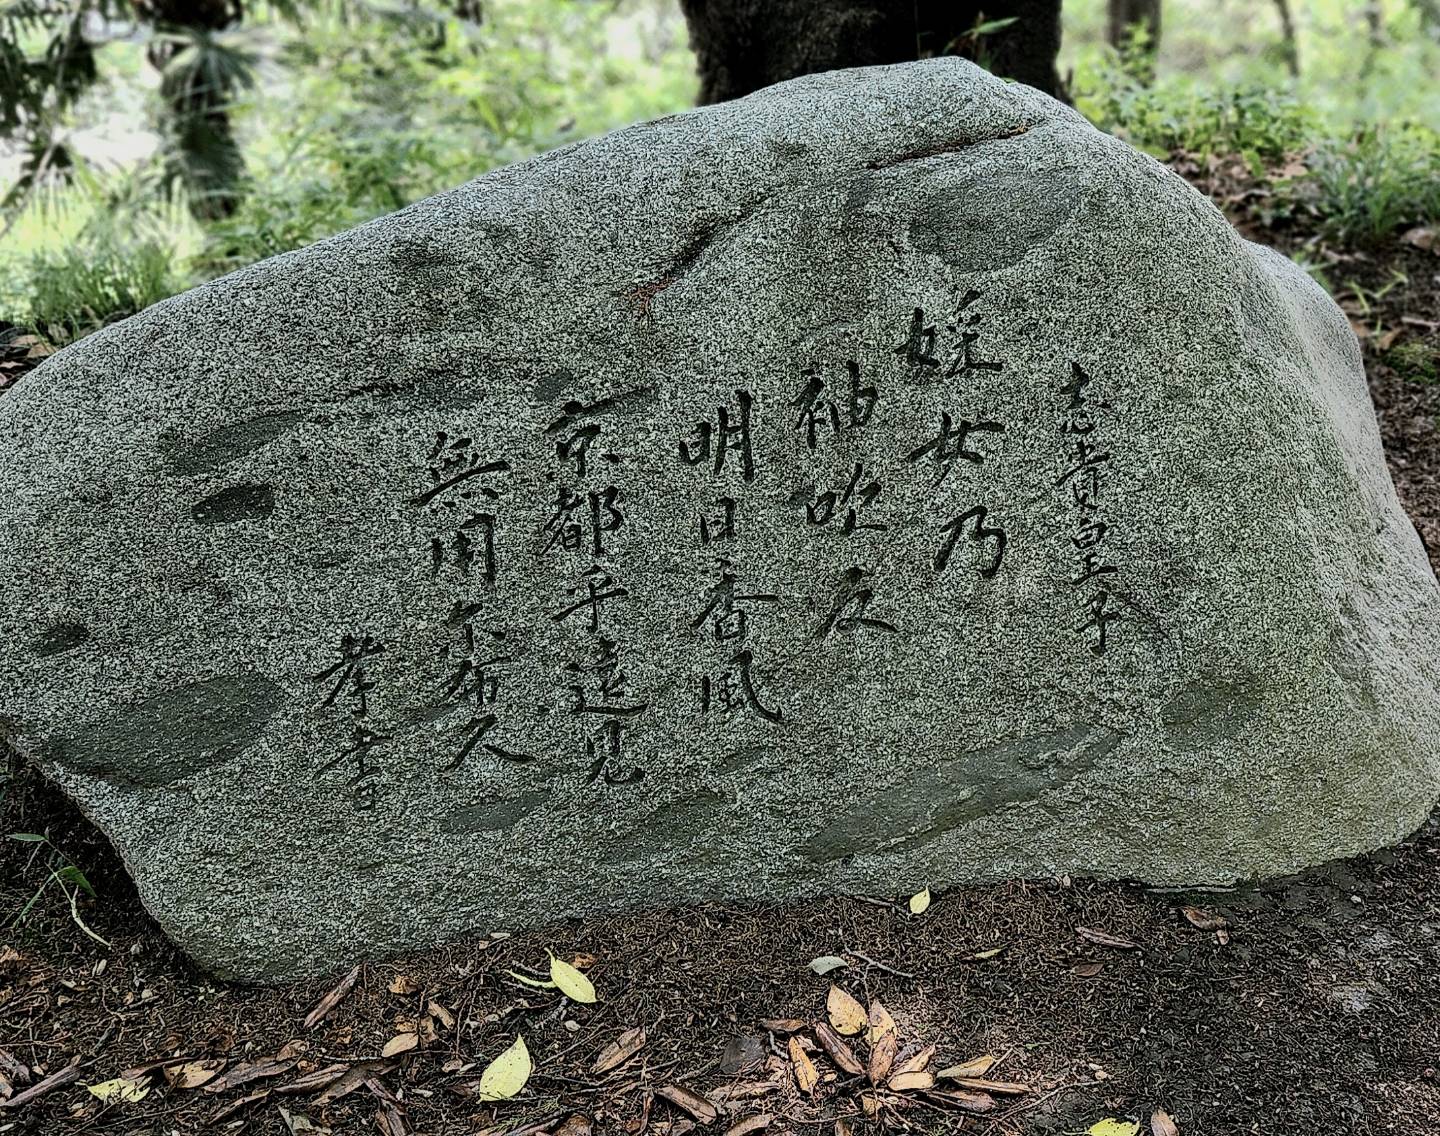 志貴皇子
婇女乃
袖吹反
明日香風
京都乎遠見
無用尓布久
孝書